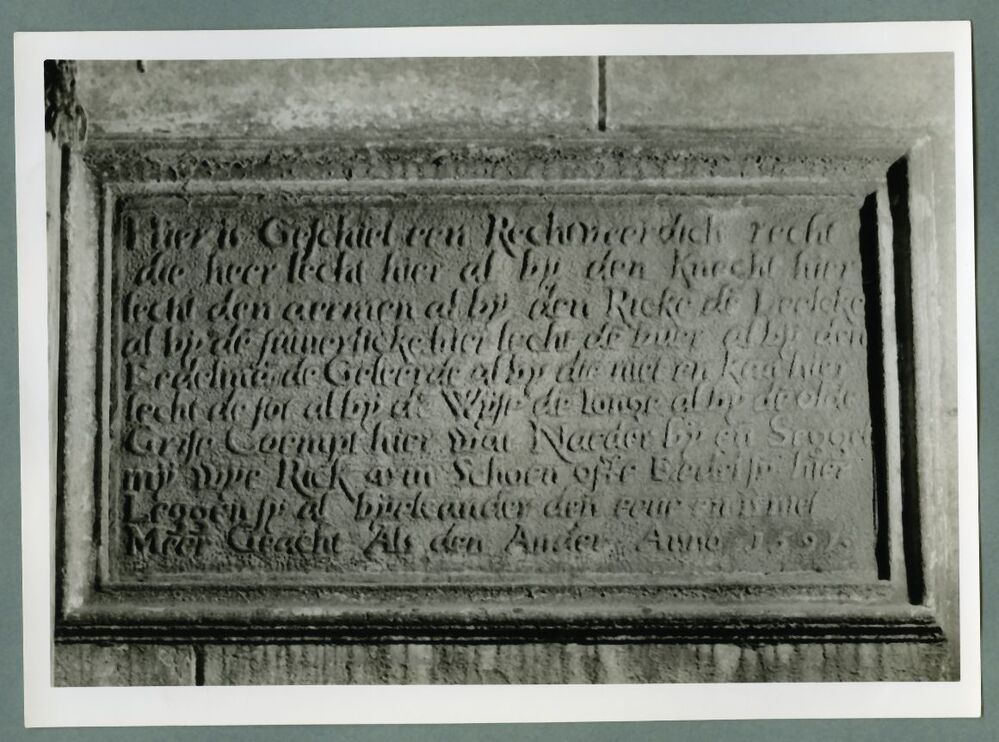 Hier is Geschiet een Rechtveerdich recht
die heer lecht hier al bij den Knecht hier
lecht den aermen al bij den Ricke de Leelcke
al bij de suiverlicke hier lecht de buer al bij den
Eedelman de Geleerde al bij die niet en kan hier
lecht de sot al bij de Wijse de Jonge al bij de olde
Grijse Coempt hier wat Naeder bij en Segget
mij wye Rick arm Schoen ofte Eedel sy hier
Leggen sy al bij elcander den eene en is niet
Meer Geacht Als den Ander Anno